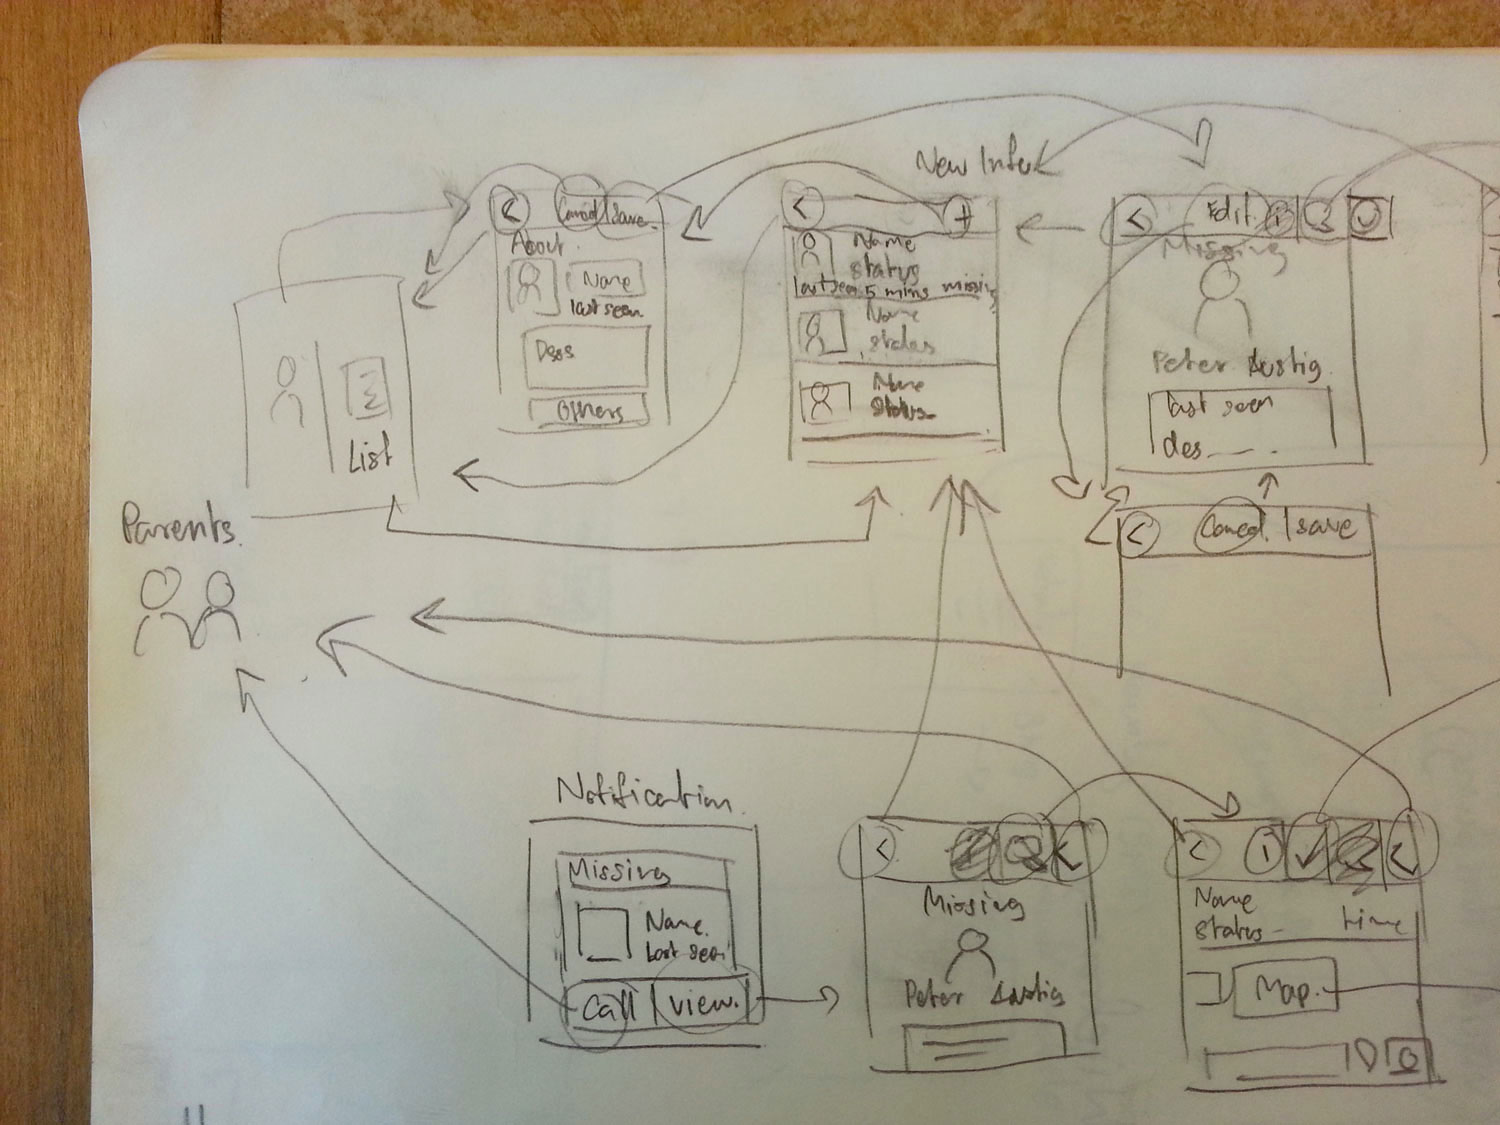 New Infer
Cancel | save
About
Name
last seen.
Des
Others
<
+
Name
status
last seen 5 mins missing
Name
status
Name
status
<
Edit
i
Missing
Peter
last seen
des
List
Parents
<
Cancel | save
Notification
Missing
Name.
last seen
Call | view.
<
Missing
Peter
<
i
Name
status
time
Map.